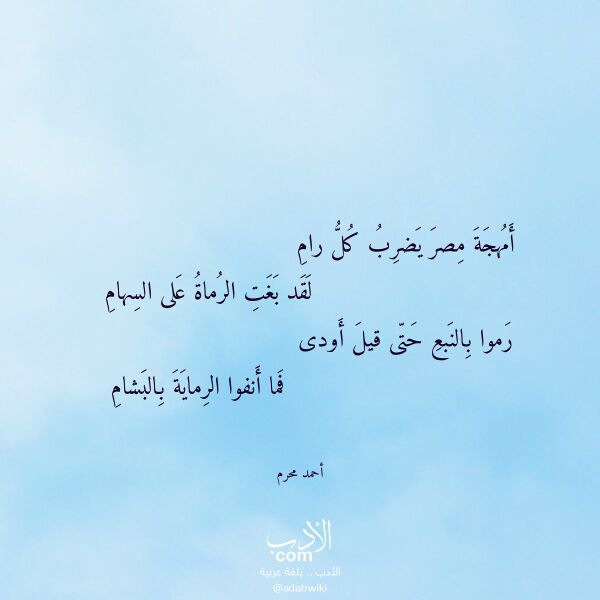 أَمُهجَةَ مِصرَ يَضرِبُ كُلُّ رامِ
لَقَد بَغَتِ الرُماةُ عَلى السِهامِ
رَموا بِالنَبعِ حَتّى قيلَ أَودى
فَما أَنفوا الرِمايَةَ بِالبَشامِ
أحمد محرم
الأدب
com
الأدب .. بلغة عربية
@adabwiki